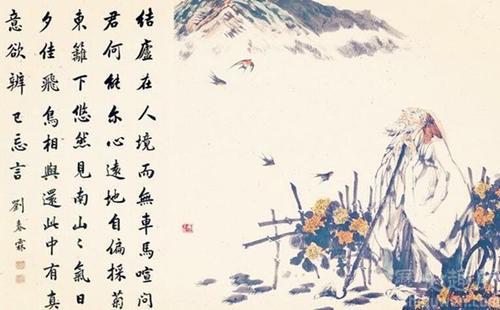 結廬在人境而無車馬喧問
君何能尔心遠地自偏採菊
東籬下悠然見南山々氣日
夕佳飛鳥相與還此中有真
意欲辨已忘言
劉春霖